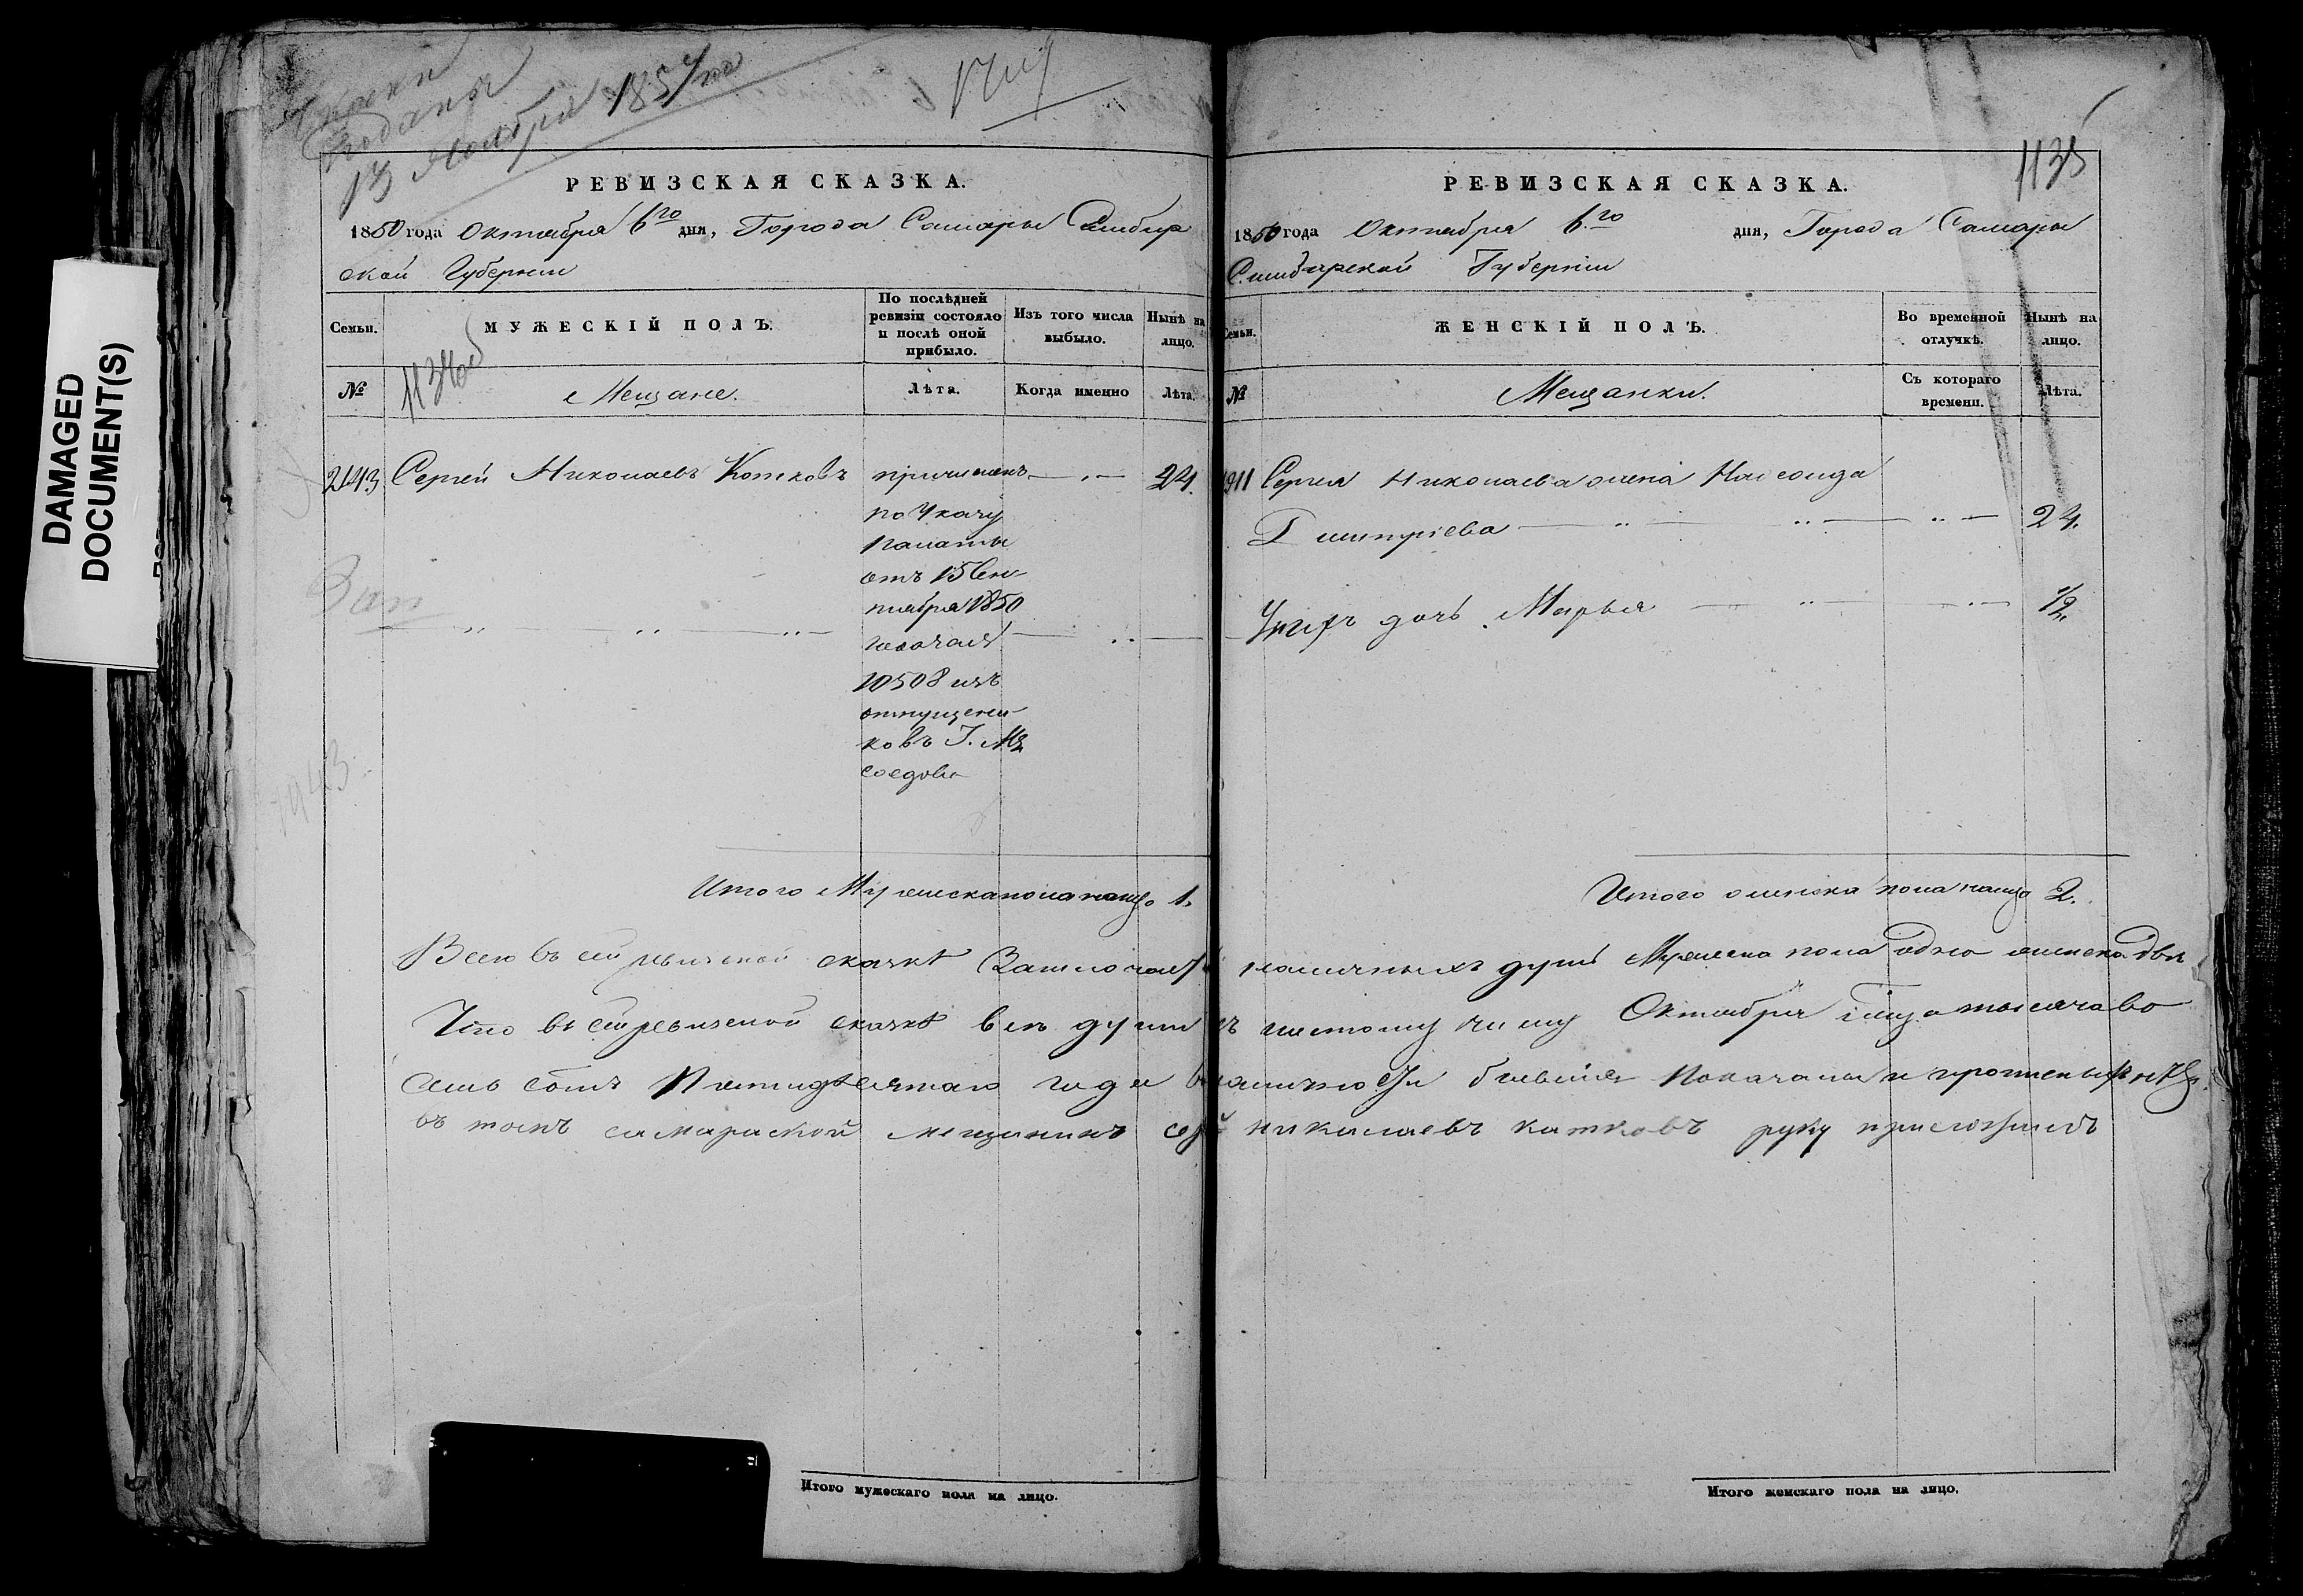 DAMAGED
DOCUMENT(S)
поданы
13 Ноября 1857 го
1135
РЕВИЗСКАЯ СКАЗКА.
1850 года Октября 6го дня, Города Самары Симбир
ской Губернии
Семьи.
МУЖЕСКІЙ ПОЛЪ.
По послѣдней
ревизіи состояло
и послѣ оной
прибыло.
Изъ того числа
выбыло.
Нынѣ на
лицо.
№
1134об
Мещане.
Лѣта.
Когда именно
Лѣта.
2143 Сергей Николаевъ Котковъ
причисленъ
по Указу
Палаты
отъ 15 Сен
тября 1850
10508 изъ
отпущени
ковъ Г. Мя
соедова
24.
Зап
1943
Итого Мужеска пола налицо 1.
РЕВИЗСКАЯ СКАЗКА.
1850 года Октября 6го дня, Города Самары
Симбирской Губерніи
Семьи.
ЖЕНСКІЙ ПОЛЪ.
Во временной
отлучкѣ.
Нынѣ на
лицо.
№
Мещанки.
Съ котораго
времени.
Лѣта.
1911 Сергея Николаева жена
Дмитріева 24.
Унихъ дочь Марья 1/2
Итого женска пола налицо 2.
Всего въ сей ревизской сказкѣ наличныхъ душъ Мужеска пола одна женска две
Что въ сей ревизской сказке все души къ шестому числу Октября тысяча во
семь сотъ Пятидесятаго года показаны и
въ томъ самарской мещанинъ николаевъ катковъ руку приложилъ
Итого мужескаго пола на лицо.
Итого женскаго пола на лицо.